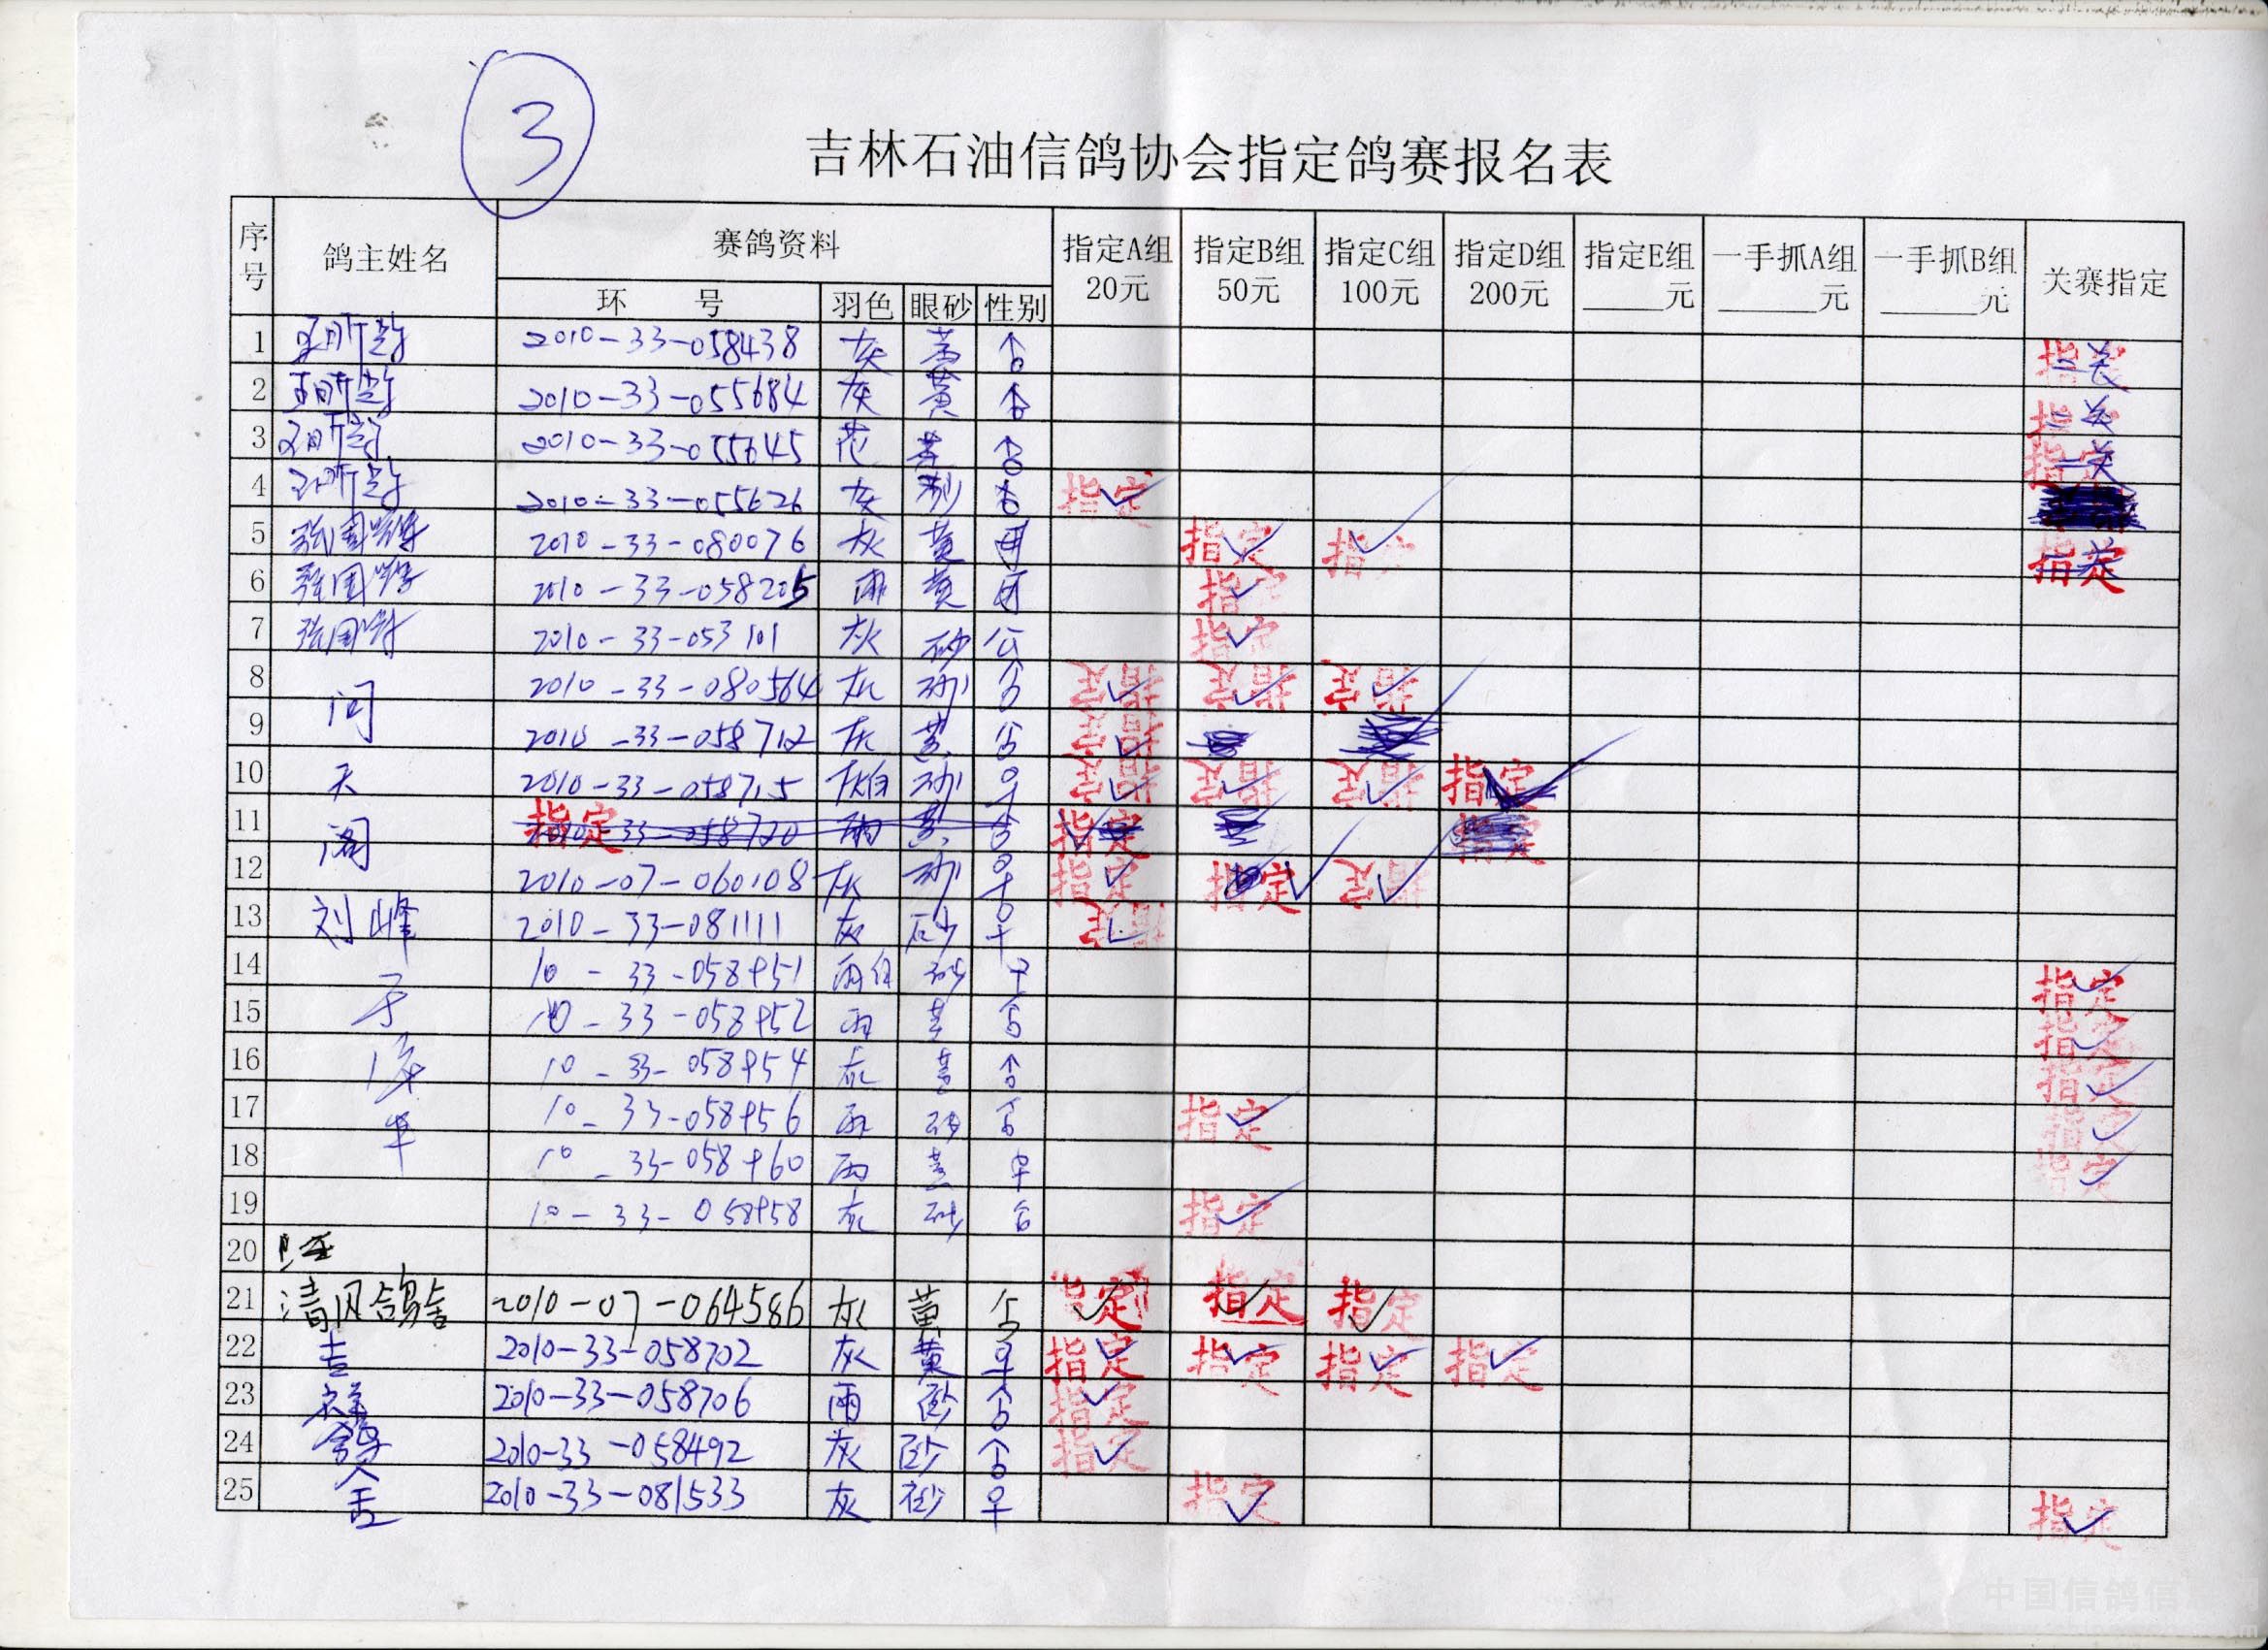 3
吉林石油信鸽协会指定鸽赛报名表
序号 鸽主姓名 赛鸽资料 指定A组 20元 指定B组 50元 指定C组 100元 指定D组 200元 指定E组 ____元 一手抓A组 ____元 一手抓B组 ____元 关赛指定
环 号 羽色 眼砂 性别
1 2010-33-058438 灰 黄 指定
2 2010-33-055684 灰 黄 指定
3 2010-33-055645 花 黄 指定
4 2010-33-055626 灰 砂 指定
5 张国 2010-33-080076 灰 黄 指定 指定 指定
6 张国 2010-33-058205 雨 黄 指定
7 张国 2010-33-053101 灰 砂 公 指定
8 2010-33-080564 灰 砂 指定 指定 指定
9 2010-33-058712 灰 黄 指定
10 天 2010-33-058715 灰白 砂 指定 指定 指定 指定
11 阁 指定 33-058720 雨 黄 指定 指定
12 2010-07-060108 灰 砂 指定 指定 指定
13 刘峰 2010-33-081111 灰 砂 指定
14 10-33-058951 雨白 砂 指定
15 10-33-058952 雨 黄 指定
16 10-33-058954 灰 黄 指定
17 10-33-058956 雨 砂 指定 指定
18 10-33-058960 雨 黄 指定
19 10-33-058958 灰 砂 指定
20
21 清风鸽舍 2010-07-064586 灰 黄 指定 指定 指定
22 吉 2010-33-058702 灰 黄 指定 指定 指定 指定
23 祥 2010-33-058706 雨 砂 指定
24 鸽 2010-33-058492 灰 砂 指定
25 2010-33-081533 灰 砂 指定 指定
中国信鸽信